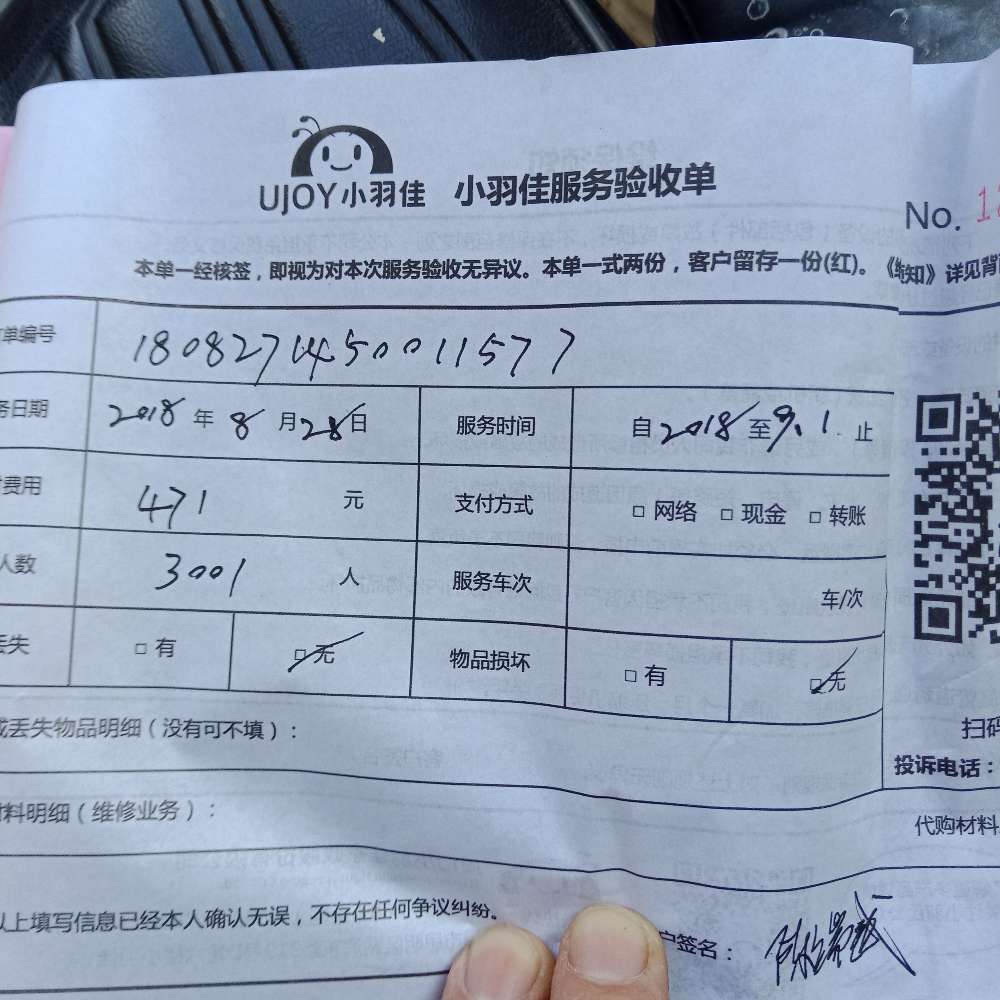 UJOY小羽佳 小羽佳服务验收单
No. 1
本单一经核签，即视为对本次服务验收无异议。本单一式两份，客户留存一份(红)。《 知》详见背
单编号 180827145001577
务日期 2018 年 8 月 28 日 服务时间 自 2018 至 9.1 止
费用 471 元 支付方式 □ 网络 □ 现金 □ 转账
人数 3001 人 服务车次 车/次
丢失 □ 有 □ 无 物品损坏 □ 有 □ 无
或丢失物品明细（没有可不填）：
扫码
投诉电话：
材料明细（维修业务）：
代购材料
以上填写信息已经本人确认无误，不存在任何争议纠纷。
户签名：